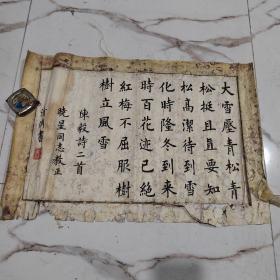 大雪壓青松青
松挺且直要知
松高潔待到雪
化時隆冬到來
時百花迹已絶
紅梅不屈服樹
樹立風雪
陳毅詩二首
曉星同志教正